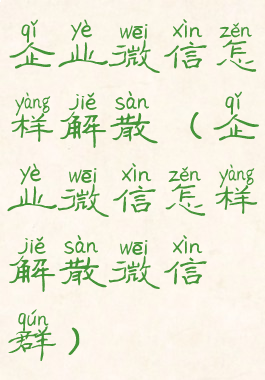 qǐ yè wēi xìn zěn
企业微信怎
yàng jiě sàn qǐ
样解散（企
yè wēi xìn zěn yàng
业微信怎样
jiě sàn wēi xìn
解散微信
qún
群）